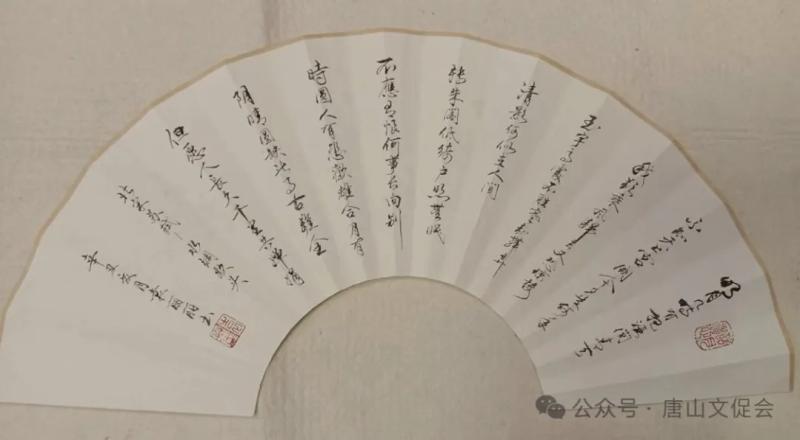 明月几时有把酒问青天
不知天上宫阙今夕是何年
我欲乘风归去又恐琼楼
玉宇高处不胜寒起舞弄
清影何似在人间
转朱阁低绮户照無眠
不應有恨何事长向别
時圆人有悲歡離合月有
阴晴圆缺此事古難全
但愿人长久千里共婵娟
北宋苏轼水调歌头
辛丑
公众号·唐山文促会